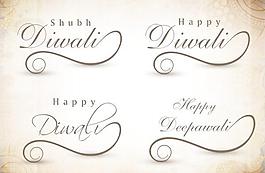 Shubh
Diwali
Happy
Diwali
Happy
Diwali
Happy
Deepawali